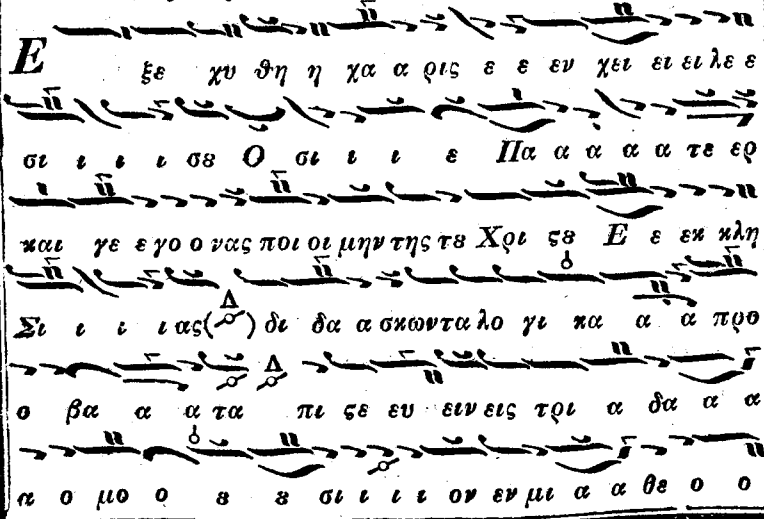 Ε ξε χυ θη η χα α ρις ε ε εν χει ει ει λε ε
σι ι ι ι σȣ Ο σι ι ι ε Πα α α α α τε ερ
και γε ε γο ο νας ποι οι μην της τȣ Χρι ςȣ Ε ε εκ κλη
Σι ι ι ι ας (Δ) δι δα α σκων τα λο γι κα α α προ
ο βα α α τα Δ πι ςε ευ ειν εις τρι α δα α α
α ο μο ο ȣ ȣ σι ι ι ι ον εν μι α α θε ο ο